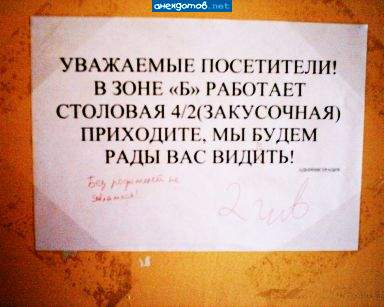 анекдотов.net
УВАЖАЕМЫЕ ПОСЕТИТЕЛИ!
В ЗОНЕ «Б» РАБОТАЕТ
СТОЛОВАЯ 4/2(ЗАКУСОЧНАЯ)
ПРИХОДИТЕ, МЫ БУДЕМ
РАДЫ ВАС ВИДИТЬ!
АДМИНИСТРАЦИЯ
Без не